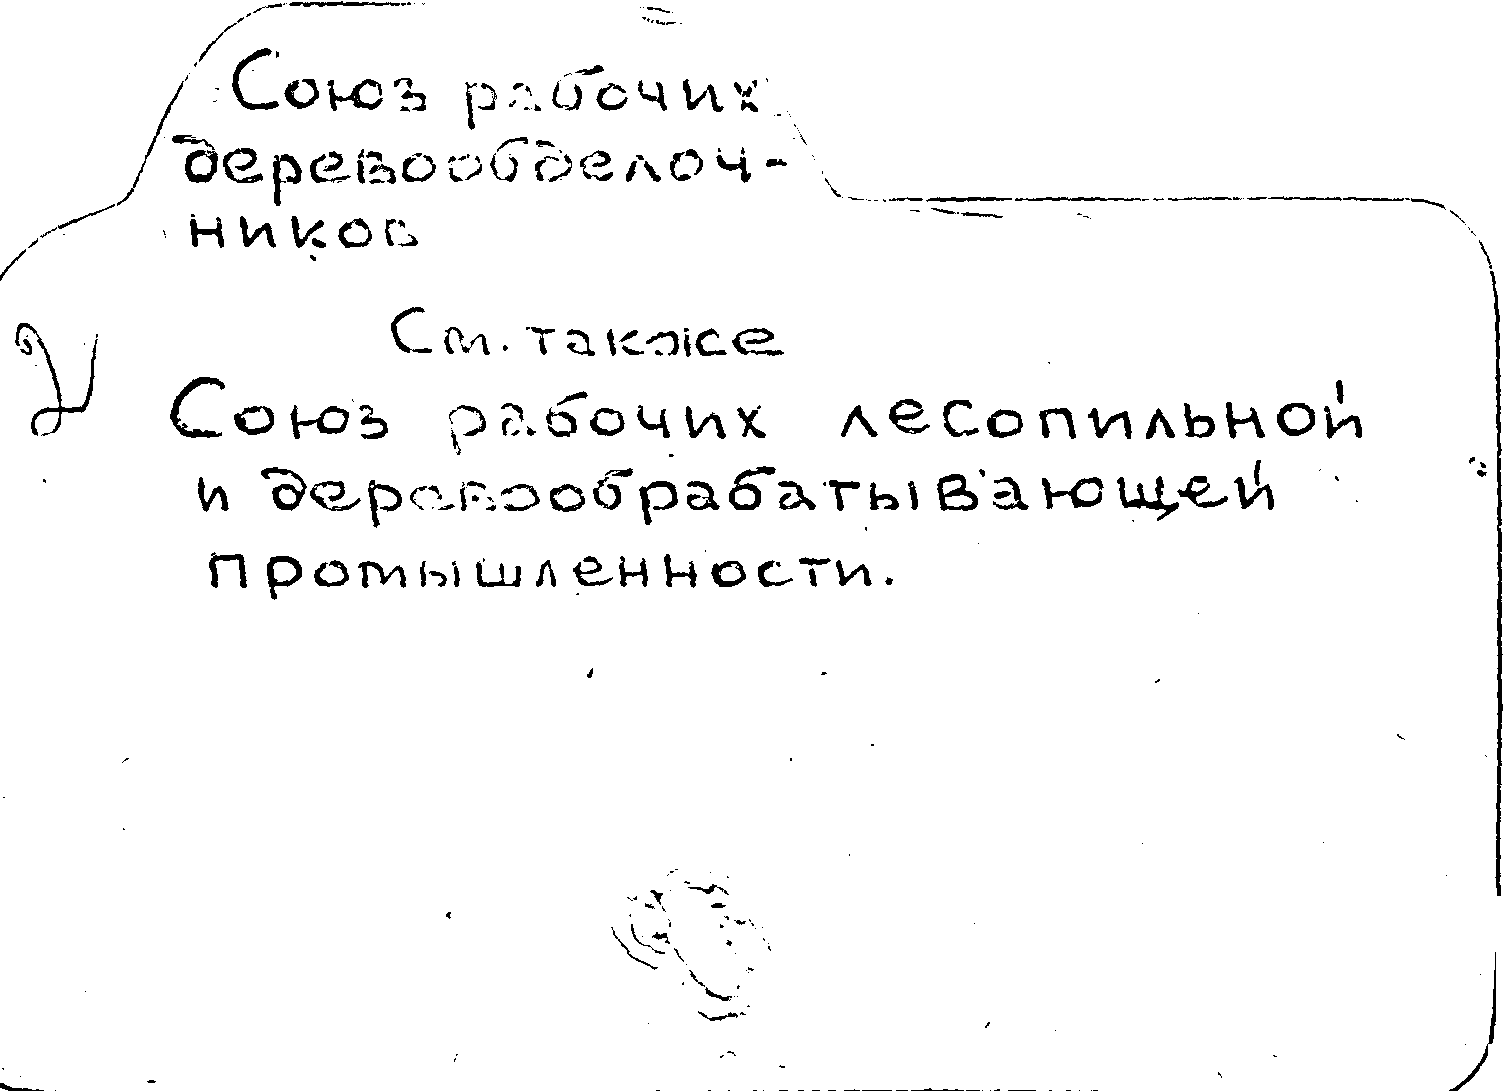 Союз рабочих
деревообделоч-
ников
См. также
Союз рабочих лесопильной
и деревообрабатывающей
промышленности.